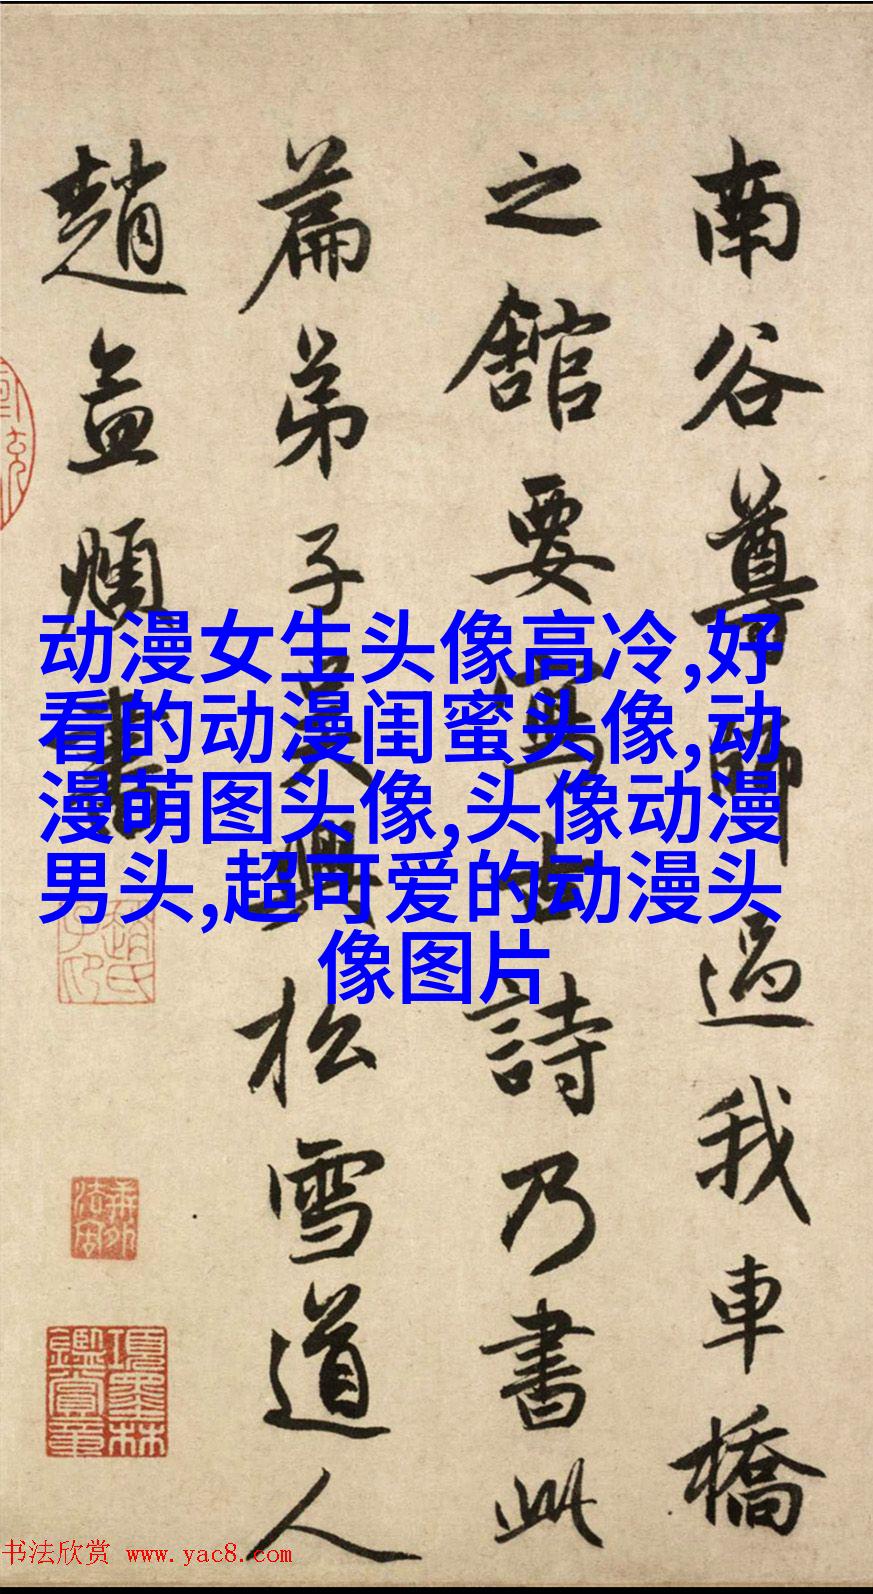 南谷尊師過我車橋
之舘要寫古詩乃書此
篇弟子吴興松雪道人
趙孟頫書
动漫女生头像高冷,好
看的动漫闺蜜头像,动
漫萌图头像,头像动漫
男头,超可爱的动漫头
像图片
趙氏子印
項墨林鑑賞章
书法欣赏 www.yac8.com